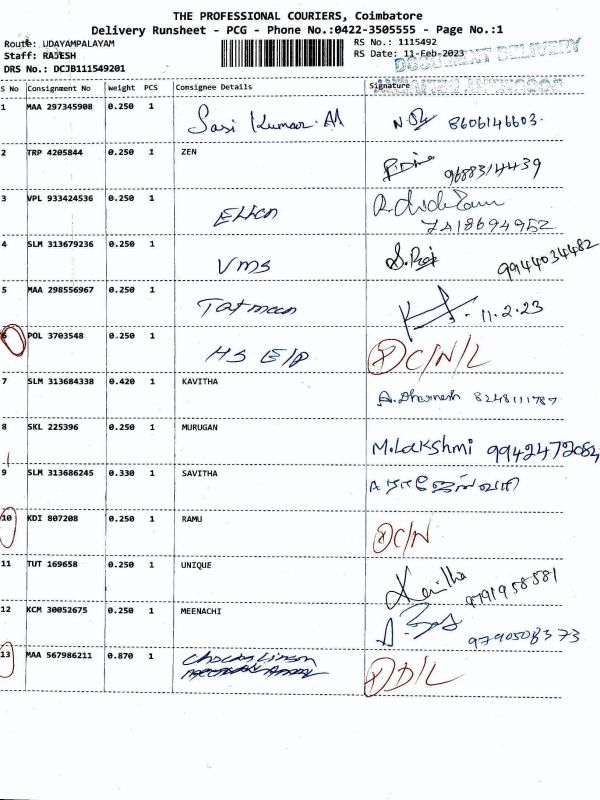 THE PROFESSIONAL COURIERS, Coimbatore
Delivery Runsheet - PCG - Phone No.:0422-3505555 - Page No.:1
Route: UDAYAMPALAYAM RS No.: 1115492
Staff: RAJESH RS Date: 11-Feb-2023
DRS No.: DCJB111549201
DOCUMENT DELIVERY
S No Consignment No Weight PCS Consignee Details Signature
1 MAA 297345908 0.250 1 Sasi Kumar. M 8606146603.
2 TRP 4205844 0.250 1 ZEN 9688314439
3 VPL 933424536 0.250 1
4 SLM 313679236 0.250 1 Vms 9944034482
5 MAA 298556967 0.250 1 11.2.23
6 POL 3703548 0.250 1 C/N/L
7 SLM 313684338 0.420 1 KAVITHA A.Dharnesh 8248111787
8 SKL 225396 0.250 1 MURUGAN M.Lakshmi 9942472084
9 SLM 313686245 0.330 1 SAVITHA
10 KDI 807208 0.250 1 RAMU C/N
11 TUT 169658 0.250 1 UNIQUE 9791958581
12 KCM 30052675 0.250 1 MEENACHI 9790508373
13 MAA 567986211 0.870 1 D/L